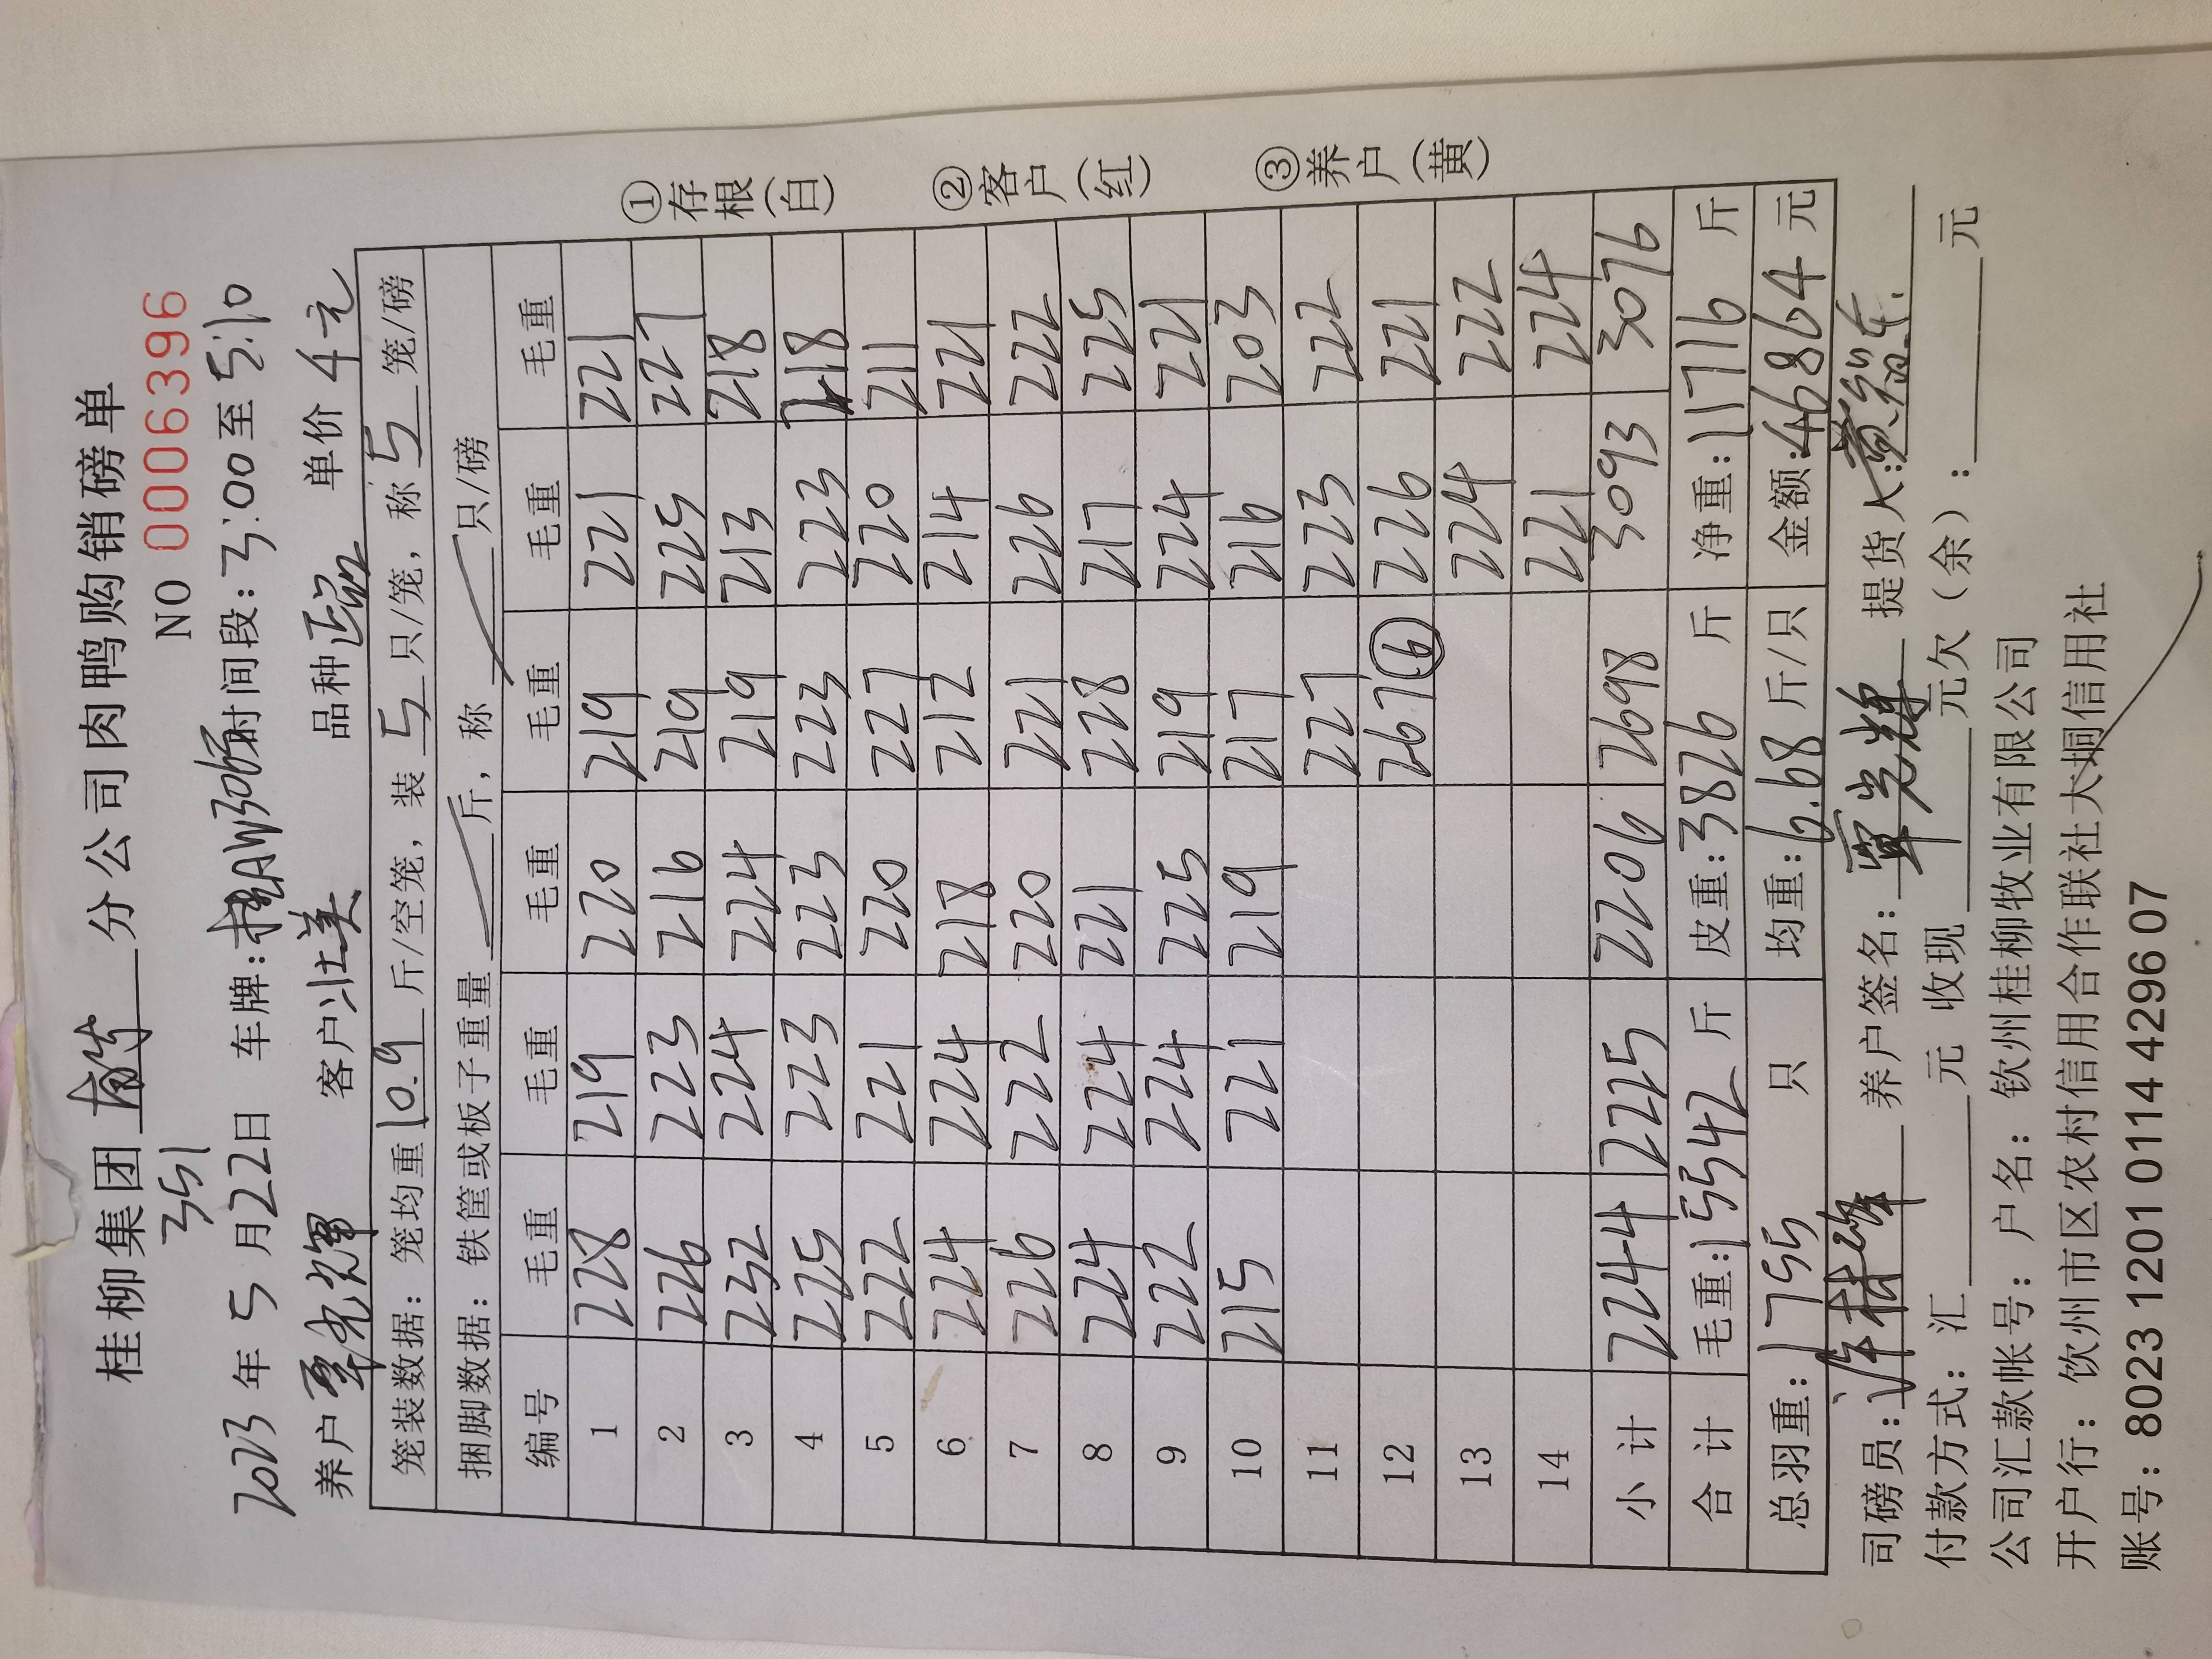 桂柳集团 分公司肉鸭购销磅单
351
NO 0006396
2023年5月22日 车牌: 时间段:3:00至5:10
养户 覃光辉 客户 壮美 品种 单价 4元
笼装数据: 笼均重 10.9 斤/空笼, 装 5 只/笼, 称 5 笼/磅
捆脚数据: 铁筐或板子重量 斤, 称 只/磅
编号 毛重 毛重 毛重 毛重 毛重 毛重
1 228 219 220 219 221 221
2 226 223 216 219 225 227
3 232 224 224 219 213 218
4 225 223 223 223 223 218
5 222 221 220 227 220 211
6 224 224 218 212 214 221
7 226 222 220 221 226 222
8 224 224 221 228 217 225
9 222 224 225 219 224 221
10 215 221 219 217 216 203
11 227 223 222
12 267 6 226 221
13 224 222
14 221 224
小计 2244 2225 2206 2698 3093 3076
合计 毛重:15542 斤 皮重:3826 斤 净重:11716 斤
总羽重:1755 只 均重:6.68 斤/只 金额:46864 元
司磅员: 养户签名:覃光辉 提货人:
付款方式: 汇 元 收现 元欠(余): 元
公司汇款帐号: 户名: 钦州桂柳牧业有限公司
开户行: 钦州市区农村信用合作联社大垌信用社
账号: 8023 1201 0114 4296 07
①存根(白)
②客户(红)
③养户(黄)